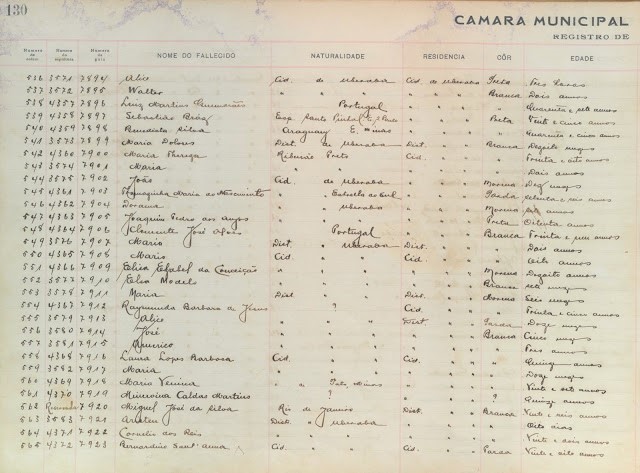 130
CAMARA MUNICIPAL
REGISTRO DE
Numero de ordem Numero da sepultura Numero de guia NOME DO FALLECIDO NATURALIDADE RESIDENCIA CÔR EDADE
536 3571 7894 Alice Cid. de Uberaba Cid. de Uberaba Preta Tres
537 3572 7895 Walter " " " " " " Branca Dois annos
538 4357 7896 Luiz Martins Guimarães Portugal " " " " Quarenta e sete annos
539 4358 7897 Sebastião Braz " " " Preta Vinte e cinco annos
540 4359 7898 Benedicta Silva Araguary E. Minas " " " " Quarenta e cinco annos
541 3573 7899 Maria Dolores Dist. de Uberaba Dist. " " Branca Dezoito mezes
542 4360 7900 Maria Ribeirão Preto Cid. " " " Trinta e oito annos
543 3574 7901 Maria " " " " " " " Dois annos
544 3575 7902 João Cid de Uberaba " " " Morena Dez mezes
545 4361 7903 Maria do Nascimento " " Estrella do Sul " " " Parda setenta e seis annos
546 4362 7904 " " Uberaba " " " Morena annos
547 4363 7905 Joaquim Pedro dos Anjos " " " " " " Preta Oitenta annos
548 4364 7906 Clemente José Portugal " " " Branca Trinta e um annos
549 3576 7907 Mario Dist. " Uberaba Dist. " " " Dois annos
550 4365 7908 Mario Cid. " " Cid. " " " Oito annos
551 4366 7909 da Conceição " " " " " " Morena Dezoito annos
552 3577 7910 Elisa Modelo " " " " " " Branca sete mezes
553 3578 7911 Maria Dist " " Dist. " " Morena Seis mezes
554 4367 7912 Raymunda Barbara de Jesus ? Cid. " " " Trinta e cinco annos
555 3579 7913 Alice " " " Dist " " Parda Doze mezes
556 3580 7914 José " " " " " " Branca Cinco mezes
557 3581 7915 Americo " " " " " " " Tres annos
558 4368 7916 Laura Lopes Barbosa Cid. " " Cid. " " " annos
559 3582 7917 Maria " " " " " " " Doze mezes
560 4369 7918 Mario " Minas " " " " Vinte e seis annos
561 4370 7919 Caldas Martins ? " " " ? Quinze annos
562 7920 Miguel José da Silva Rio de Janeiro Dist. " " Branca Vinte e seis annos
563 3583 7921 Dist. " Uberaba " " " " Oito dias
564 4371 7922 Cornelio dos Reis " " " " " " " Vinte e dois annos
565 4372 7923 Bernardino Sant'Anna Cid. " " Cid. " " Parda Vinte e oito annos